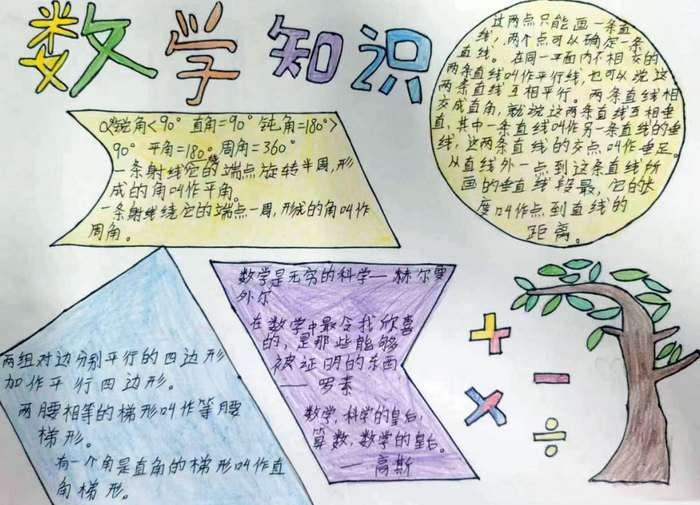 数学知识
0°<锐角<90° 直角=90° 钝角=180°>
90° 平角=180° 周角=360°
一条射线它的端点旋转半周,形
成的角叫作平角。
一条射线绕它的端点一周,形成的角叫作
周角。
过两点只能画一条直
线,两个点可以确定一条
直线。在同一平面内不相交的
两条直线叫作平行线,也可以说这
两条直线互相平行。两条直线相
交成直角,就说这两条直线互相垂
直,其中一条直线叫作另一条直线的垂
线,这两条直线的交点叫作垂足。
从直线外一点到这条直线所
画的垂直线段最,它的长
度叫作点到直线的
距离。
两组对边分别平行的四边形
加作平行四边形。
两腰相等的梯形叫作等腰
梯形。
有一个角是直角的梯形叫作直
角梯形。
数学是无穷的科学—赫尔曼
外尔
在数学中最令我欣喜
的,是那些能够
被证明的东西
——罗素
数学,科学的皇后,
算数,数学的皇后。
——高斯
+ − × ÷